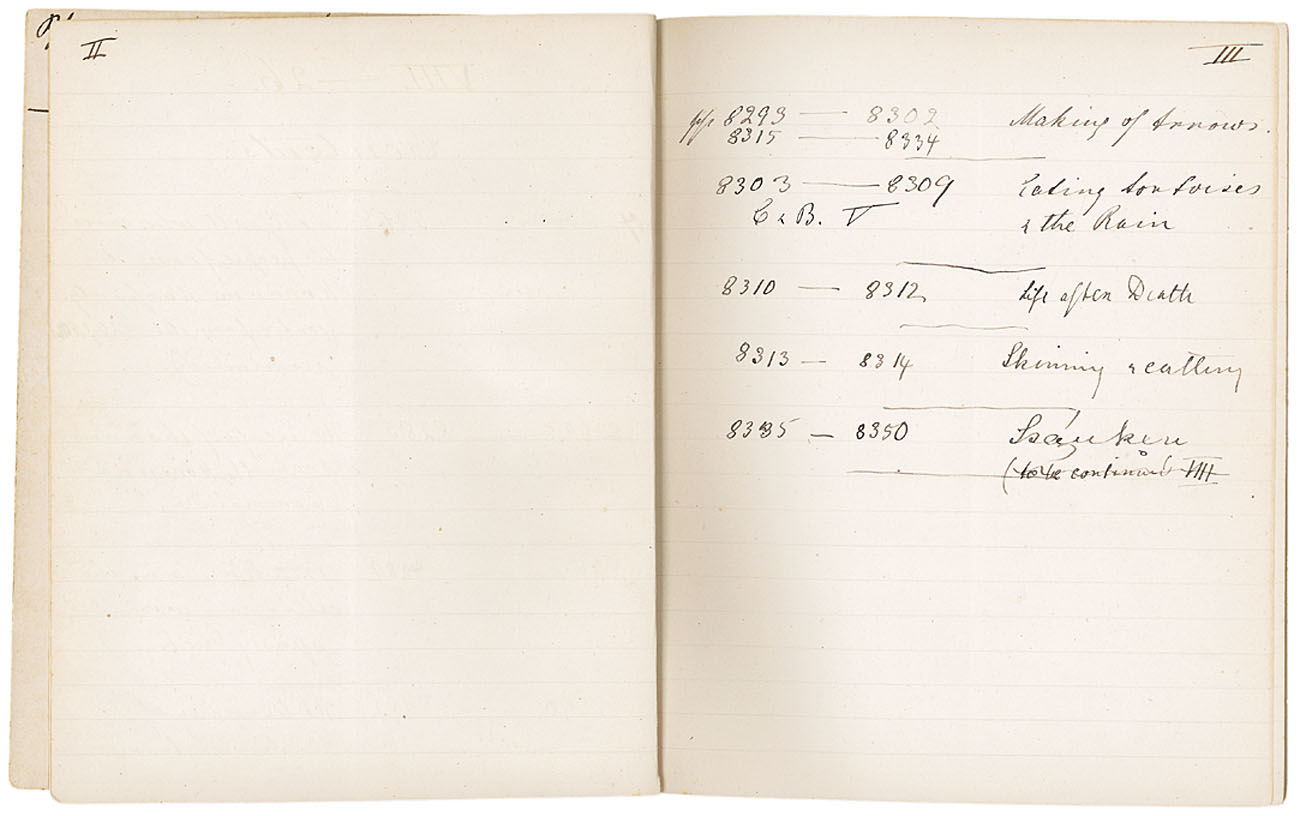 II
III
pp 8293 — 8302 Making of Arrows.
8315 — 8334
8303 — 8309 Eating tortoises
C & B. V & the Rain
8310 — 8312 Life after Death
8313 — 8314 Skinning & cutting
8335 — 8350
(to be continued VIII